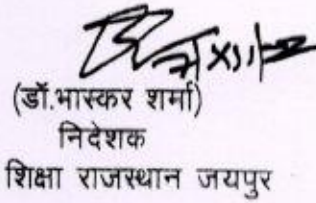 (डॉ.भास्कर शर्मा)
निदेशक
शिक्षा राजस्थान जयपुर